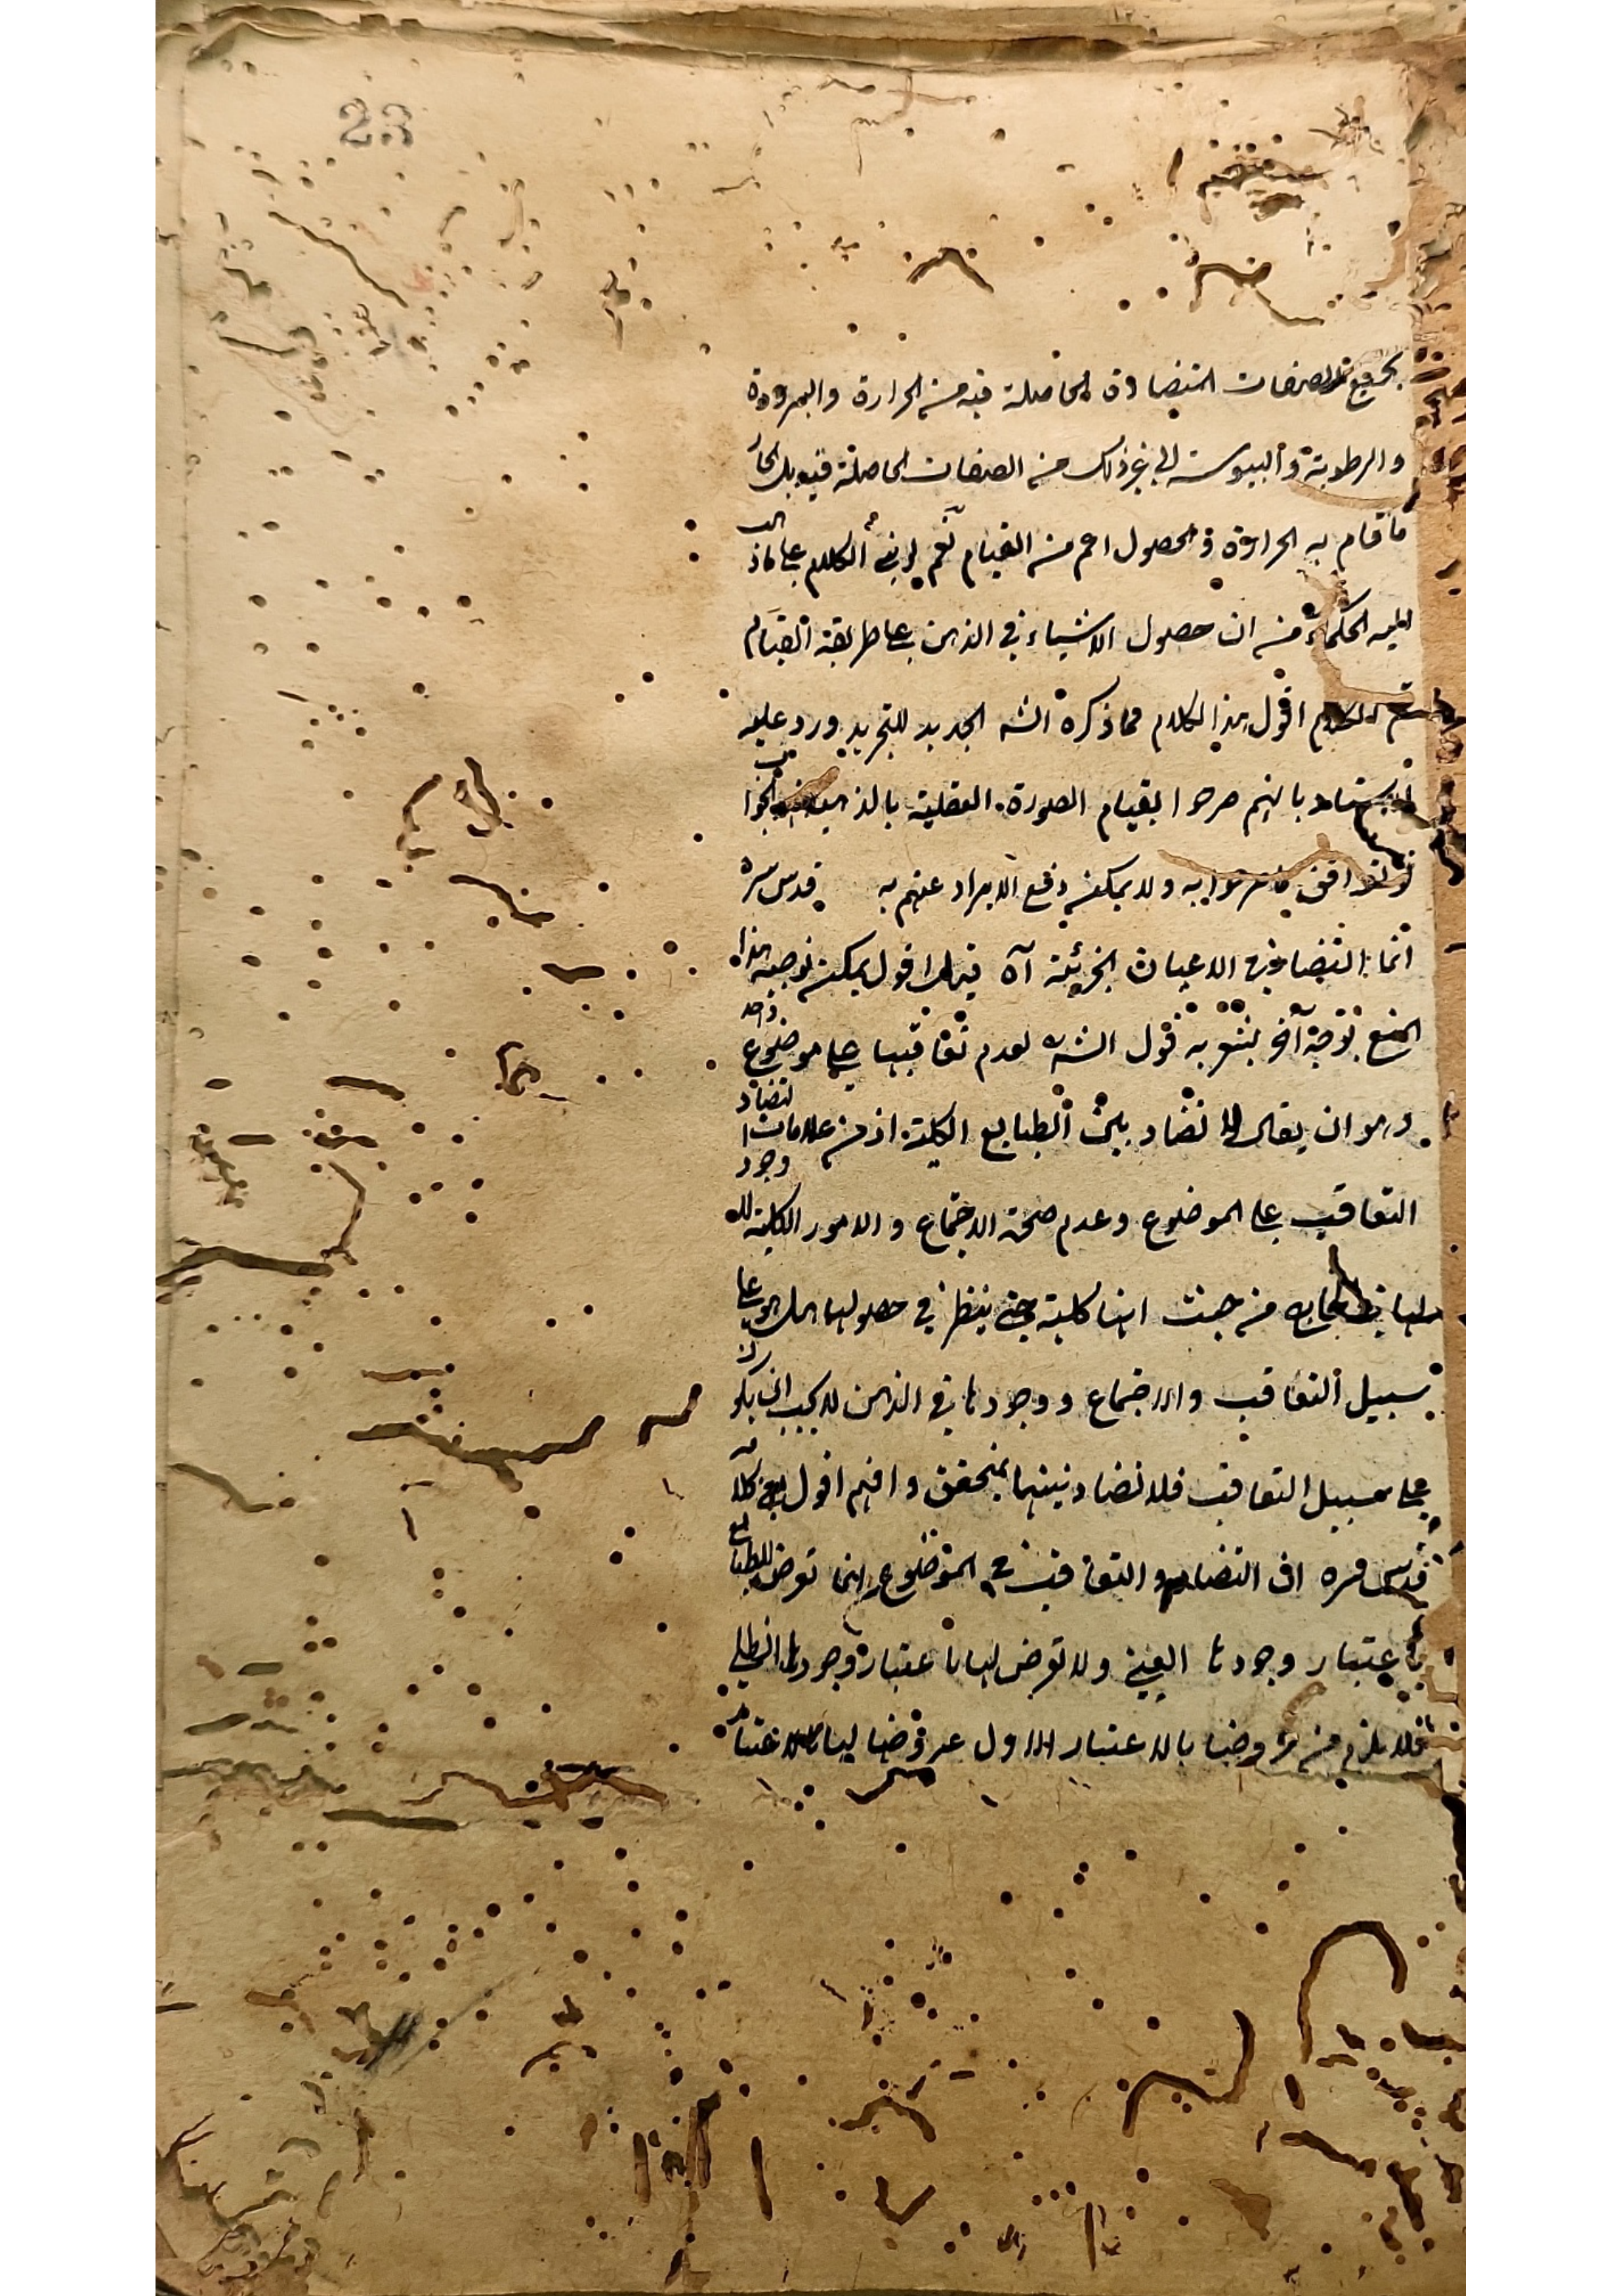 23
بجميع الصفات المتضادة الحاصلة فيه من الحرارة والبرودة
والرطوبة والبيوسة الى غير ذلك من الصفات الحاصلة فيه بل الحار
ما قام به الحرارة والحصول اعم من القيام نعم لو بنى الكلام على ما ذهب
اليه الحكماء من ان حصول الاشياء في الذهن على طريقة القيام
تم الكلام اقول هذا الكلام مما ذكره الش الجديد للتجريد ورد عليه
الاستاد بانهم صرحوا بقيام الصورة العقلية بالذهن الجواب
لا يوافق ما صرحوا به ولا يمكن دفع الايراد عنهم به قدس سره
انما التضاد في الاعيان الجزئية آه اقول يمكن توجيه هذا
المنع بوجه آخر يشعر به قول الش لعدم تعاقبها على موضوع واحد
وهو ان يقال لا تضاد بين الطبايع الكلية اذ من علامات التضاد
التعاقب على الموضوع وعدم صحة الاجتماع والامور الكلية لا وجود
لها في الخارج من حيث انها كلية حتى ينظر في حصولها على
سبيل التعاقب والاجتماع ووجودها في الذهن لا يجب ان يكون
على سبيل التعاقب فلا تضاد بينهما بمتحقق وافهم اقول كلامه
قدس سره ان التضاد والتعاقب في الموضوع انما تعرض للطبايع
باعتبار وجودها العيني ولا تعرض لها باعتبار وجودها الظلي
فلا يلزم من عروضها بالاعتبار الاول عروضها لها بالاعتبار